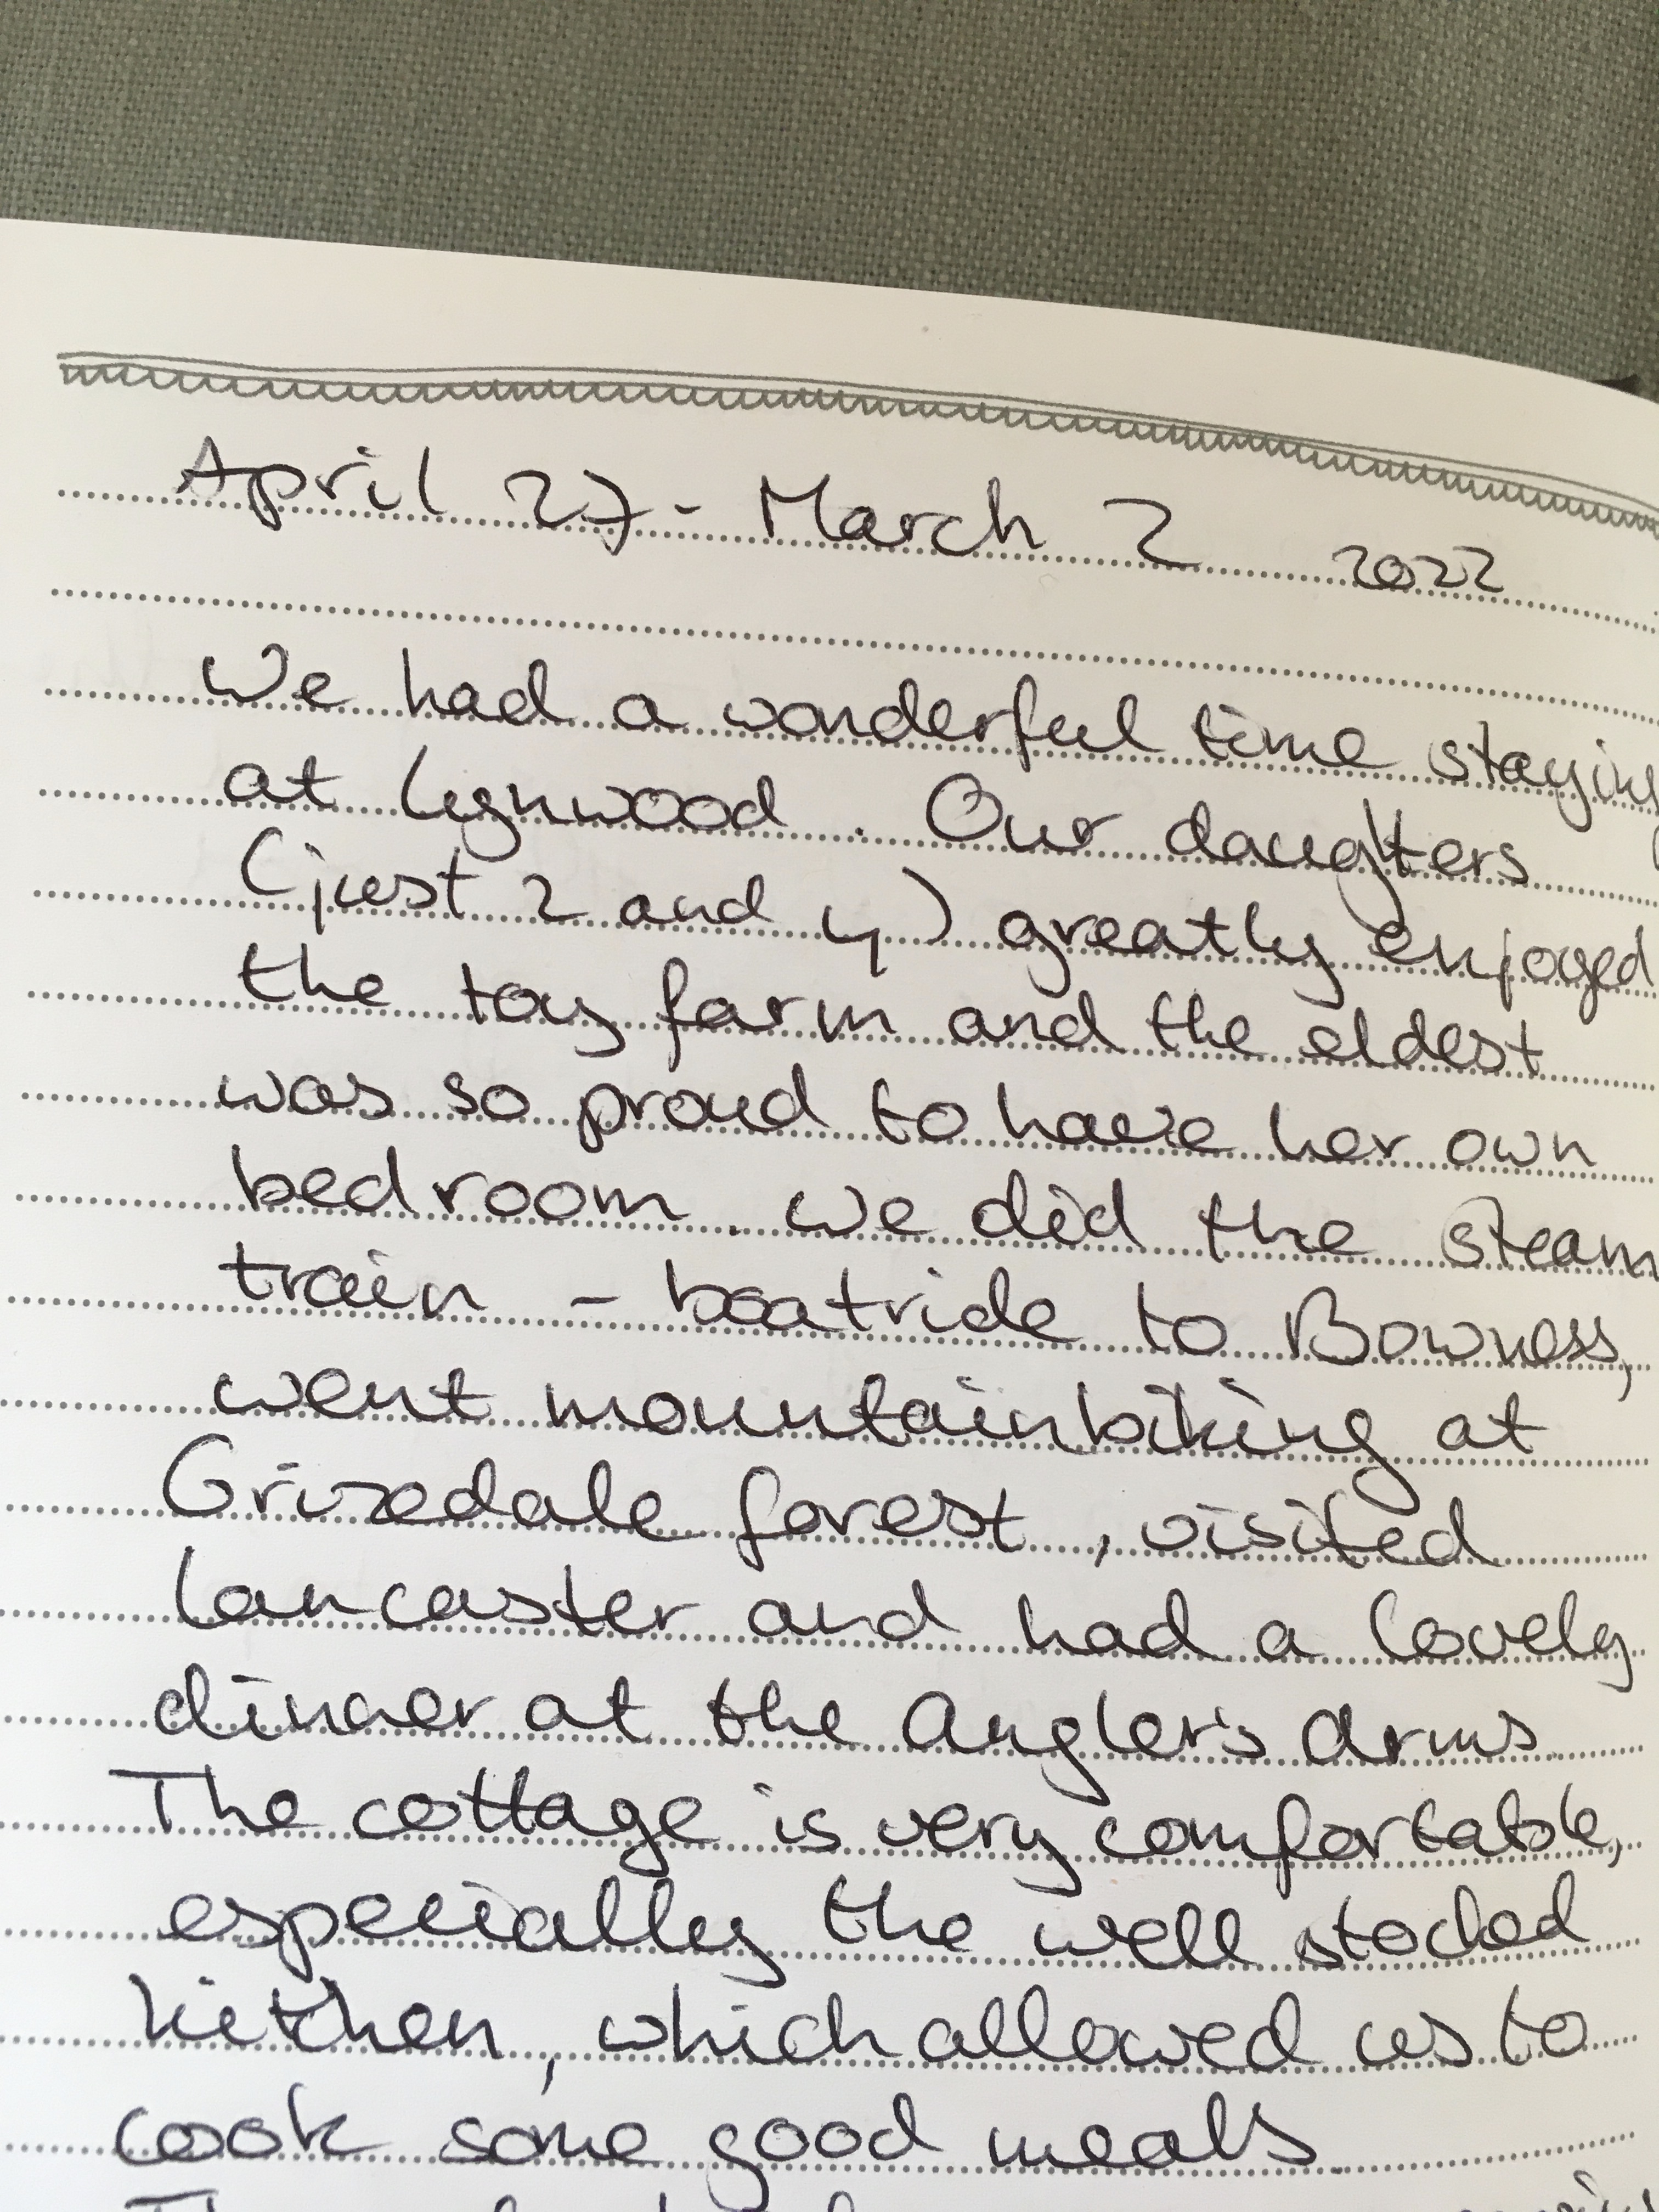 April 27 - March 2 2022
We had a wonderful time staying
at Lynwood. Our daughters
(just 2 and 4) greatly enjoyed
the toy farm and the eldest
was so proud to have her own
bedroom. We did the steam
train - boatride to Bowness,
went mountainbiking at
Grizedale forest, visited
Lancaster and had a lovely
dinner at the Angler's arms.
The cottage is very comfortable,
especially the well stocked
kitchen, which allowed us to
cook some good meals.